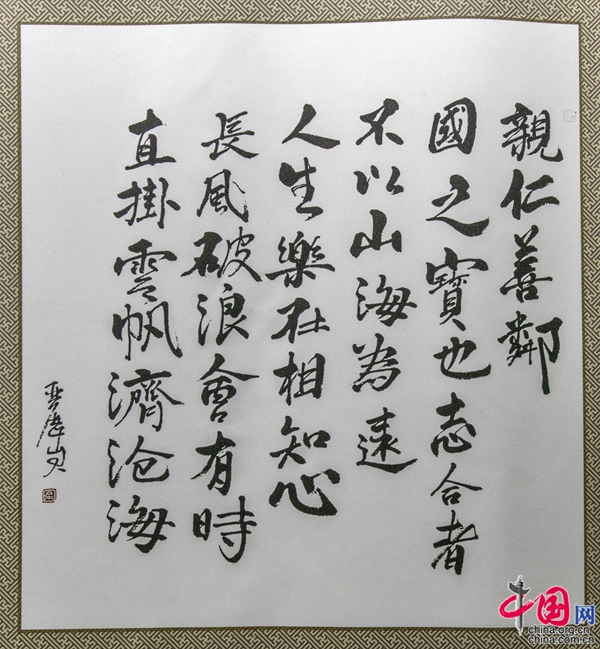 親仁善鄰
國之寶也志合者
不以山海為遠
人生樂在相知心
長風破浪會有時
直掛雲帆濟沧海
中国网
china.org.cn
china.com.cn